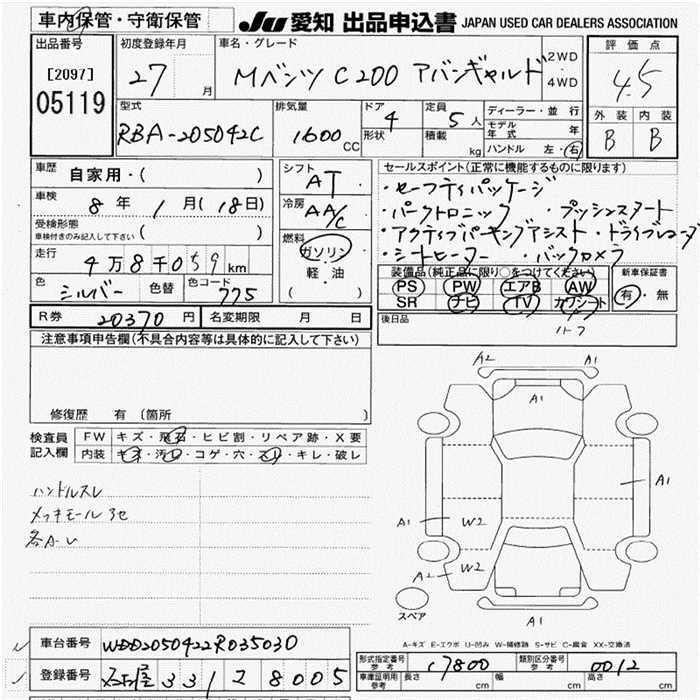 車内保管・守衛保管
JU 愛知 出品申込書 JAPAN USED CAR DEALERS ASSOCIATION
出品番号
[2097]
05119
初度登録年月
27 月
車名・グレード
Mベンツ C200 アバンギャルド
2WD
・
4WD
評価点
4.5
外装 内装
B B
型式
RBA-205042C
排気量
1600 CC
ドア 4
形状
定員 5 人
積載 kg
ディーラー・並行
モデル年式 年
ハンドル 左・右
車歴
自家用・( )
車検
8年 1月(18日)
受検形態
車検付きのみ記入して下さい ( )
走行
4万8千059km
色
シルバー
色替
色コード
775
シフト
AT
冷房
AA/C
燃料
ガソリン
・
軽・油
( )
セールスポイント(正常に機能するものに限ります)
・セーフティパッケージ
・パークトロニック ・プッシュスタート
・アクティブパーキングアシスト・ドライブレコーダ
・シートヒーター ・バックカメラ
装備品(純正品に限り○をつけてください)
PS PW エアB AW
SR ナビ TV カワシート
新車保証書
有・無
後日品
R券 20370 円
名変期限 月 日
注意事項申告欄(不具合内容等は具体的に記入して下さい)
修復歴 有(箇所 )
検査員
記入欄
FW キズ・飛石・ヒビ割・リペア跡・X要
内装 キズ・汚レ・コゲ・穴・スレ・キレ・破レ
ハンドルスレ
メッキモール
各A-U
A2 A1
A1
A1
A1 W2
A2 W2
A1
スペア
A-キズ E-エクボ U-凹み W-補修跡 S-サビ C-腐食 XX-交換済
車台番号
WDD2050422R035030
登録番号
名古屋 331 8005
形式指定番号
参考
17800
類別区分番号
参考
0012
車庫証明用
参考
長さ cm
幅 cm
高さ cm